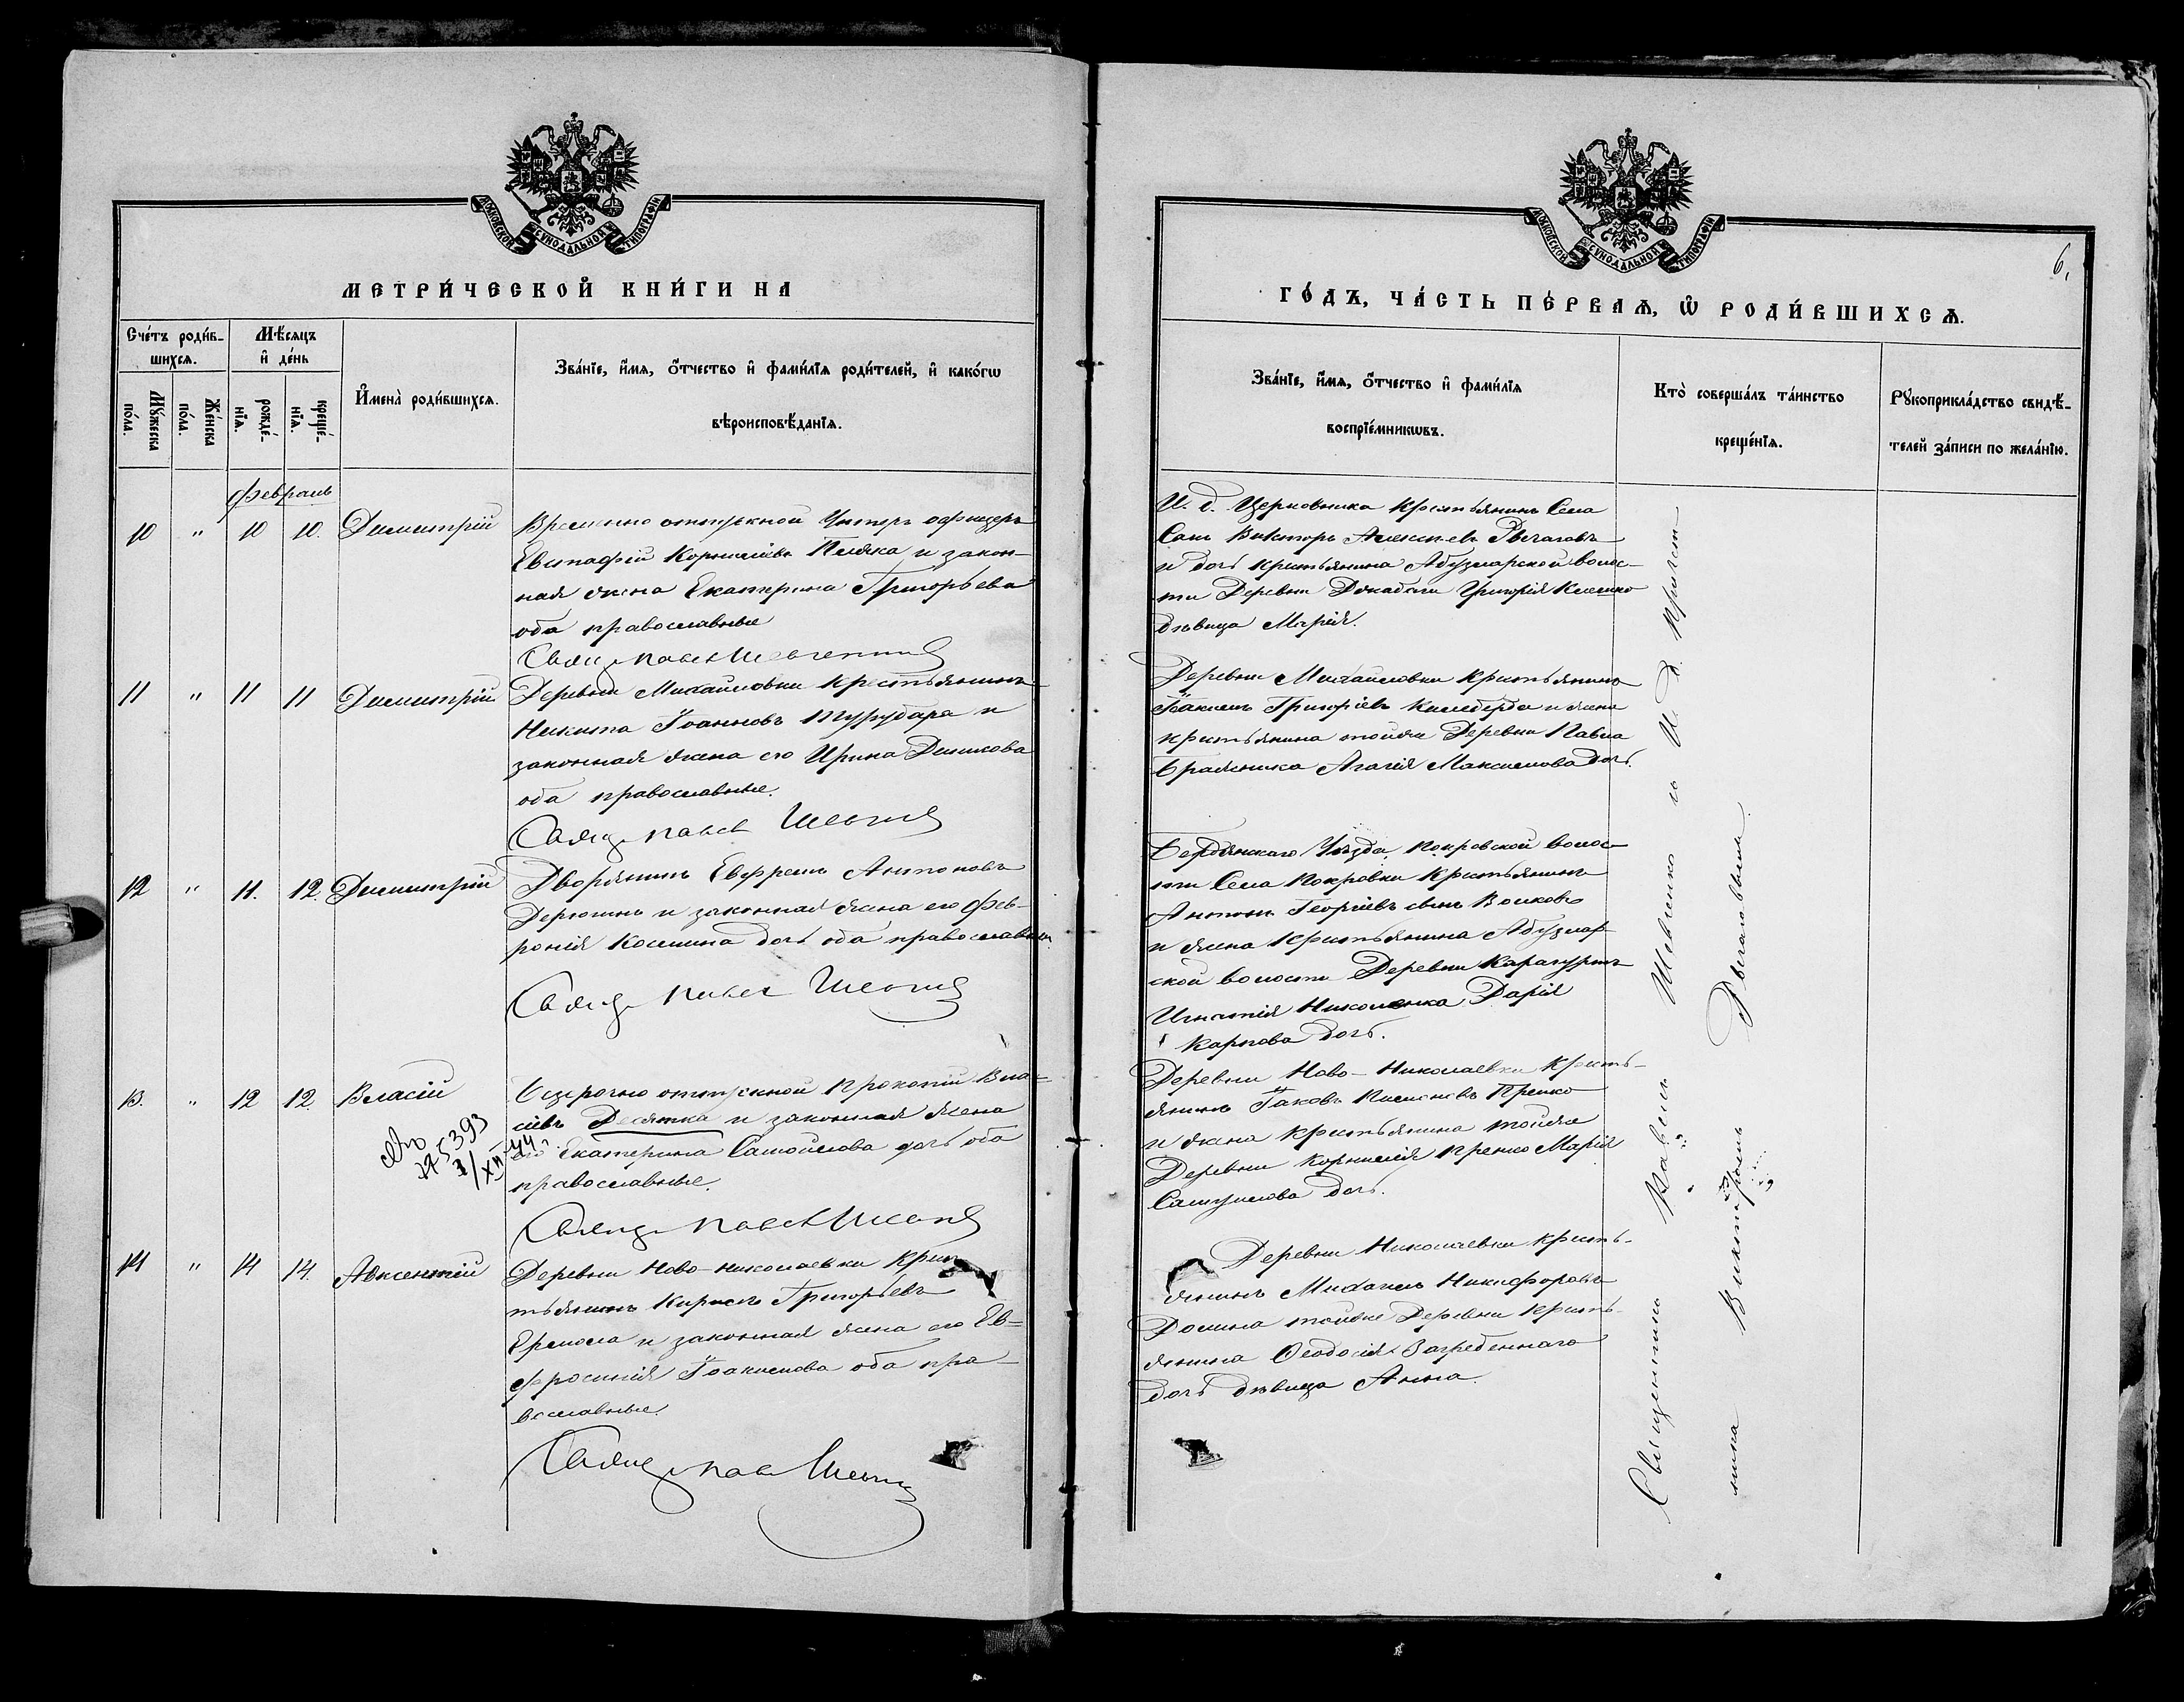 МОСКОВСКОЙ СУНОДАЛЬНОЙ ТИПОГРАФІИ
МЕТРИ́ЧЕСКОЙ КНИ́ГИ НА
Сче́тъ роди́в-
шихся.
Мѣ́сяцъ
и҆ де́нь
Мꙋ́жеска
по́ла.
Же́нска
по́ла.
рожде́-
нїя.
креще́-
нїя.
И҆мена̀ роди́вшихся.
Зва́нїе, и҆́мя, ѻ҆́тчество и҆ фами́лїя роди́телей, и҆ како́гѡ
вѣроисповѣ́данїя.
Февраль
10 " 10 10. Димитрій
Временно отпускной Унтеръ офицеръ
Евстафій Корниліевъ и закон-
ная жена Екатерина Григорьева
оба православные
Священ. Павел Шевченко
11 " 11 11 Димитрій
Деревни Михайловки крестьянинъ
Никита Іоанновъ Турубара и
законная жена его Ирина
оба православные.
Священ. Павел Шевченко
12 " 11. 12. Димитрій
Дворянинъ Ефремъ Антоновъ
Дерюгинъ и законная жена его Фев-
ронія Космина дочь оба православные
Священ. Павел Шевченко
13. " 12 12. Власій
Безсрочно отпускной Прокопій Вла-
сіевъ Десятка и законная жена
его Екатерина Самойлова дочь оба
православные.
№ 275393
1/XII-44 г.
Священ. Павел Шевченко
14 " 14 14. Авксентій
Деревни Ново-Николаевки крес-
тьянинъ Кирилъ Григорьевъ
Ермола и законная жена его Ев-
фросинія Іоакимова оба пра-
вославные.
Священ. Павел Шевченко
МОСКОВСКОЙ СУНОДАЛЬНОЙ ТИПОГРАФІИ
6.
ГО́ДЪ, ЧА́СТЬ ПЕ́РВАЯ, Ѡ҆ РОДИ́ВШИХСЯ.
Зва́нїе, и҆́мя, ѻ҆́тчество и҆ фами́лїя
воспрїе́мникѡвъ.
Кто̀ соверша́лъ та́инство
креще́нїя.
Рꙋкоприкла́дство свидѣ́-
телей за́писи по жела́нїю.
И. д. Церковника крестьянинъ Села
Викторъ Алексіевъ Рвачаговъ
и дочь крестьянина Абузмарской волос-
ти Деревни Григорія
дѣвица Марія.
Деревни Михайловки крестьянинъ
Іоакимъ Григоріевъ и жена
крестьянина тойже Деревни Павла
Бражника Агафія Максимова дочь.
Бердянскаго Уѣзда, Покровской волос-
ти Села Покровки крестьянинъ
Антонъ Георгіевъ сынъ Волковъ
и жена крестьянина Абузмар-
ской волости Деревни Каракуртъ
Игнатія Николенка Дарія
Карпова дочь.
Деревни Ново-Николаевки кресть-
янинъ Іаковъ Пименовъ Пренко
и жена крестьянина тойже
Деревни Корнилія Пренко Марія
Самуилова дочь.
Деревни Николаевки кресть-
янинъ Михаилъ Никифоровъ
Долина тойже Деревни кресть-
янина Ѳеодосія Загребеннаго
дочь дѣвица Анна.
Священникъ Павелъ Шевченко съ И. Д. Причет-
ника Викторомъ